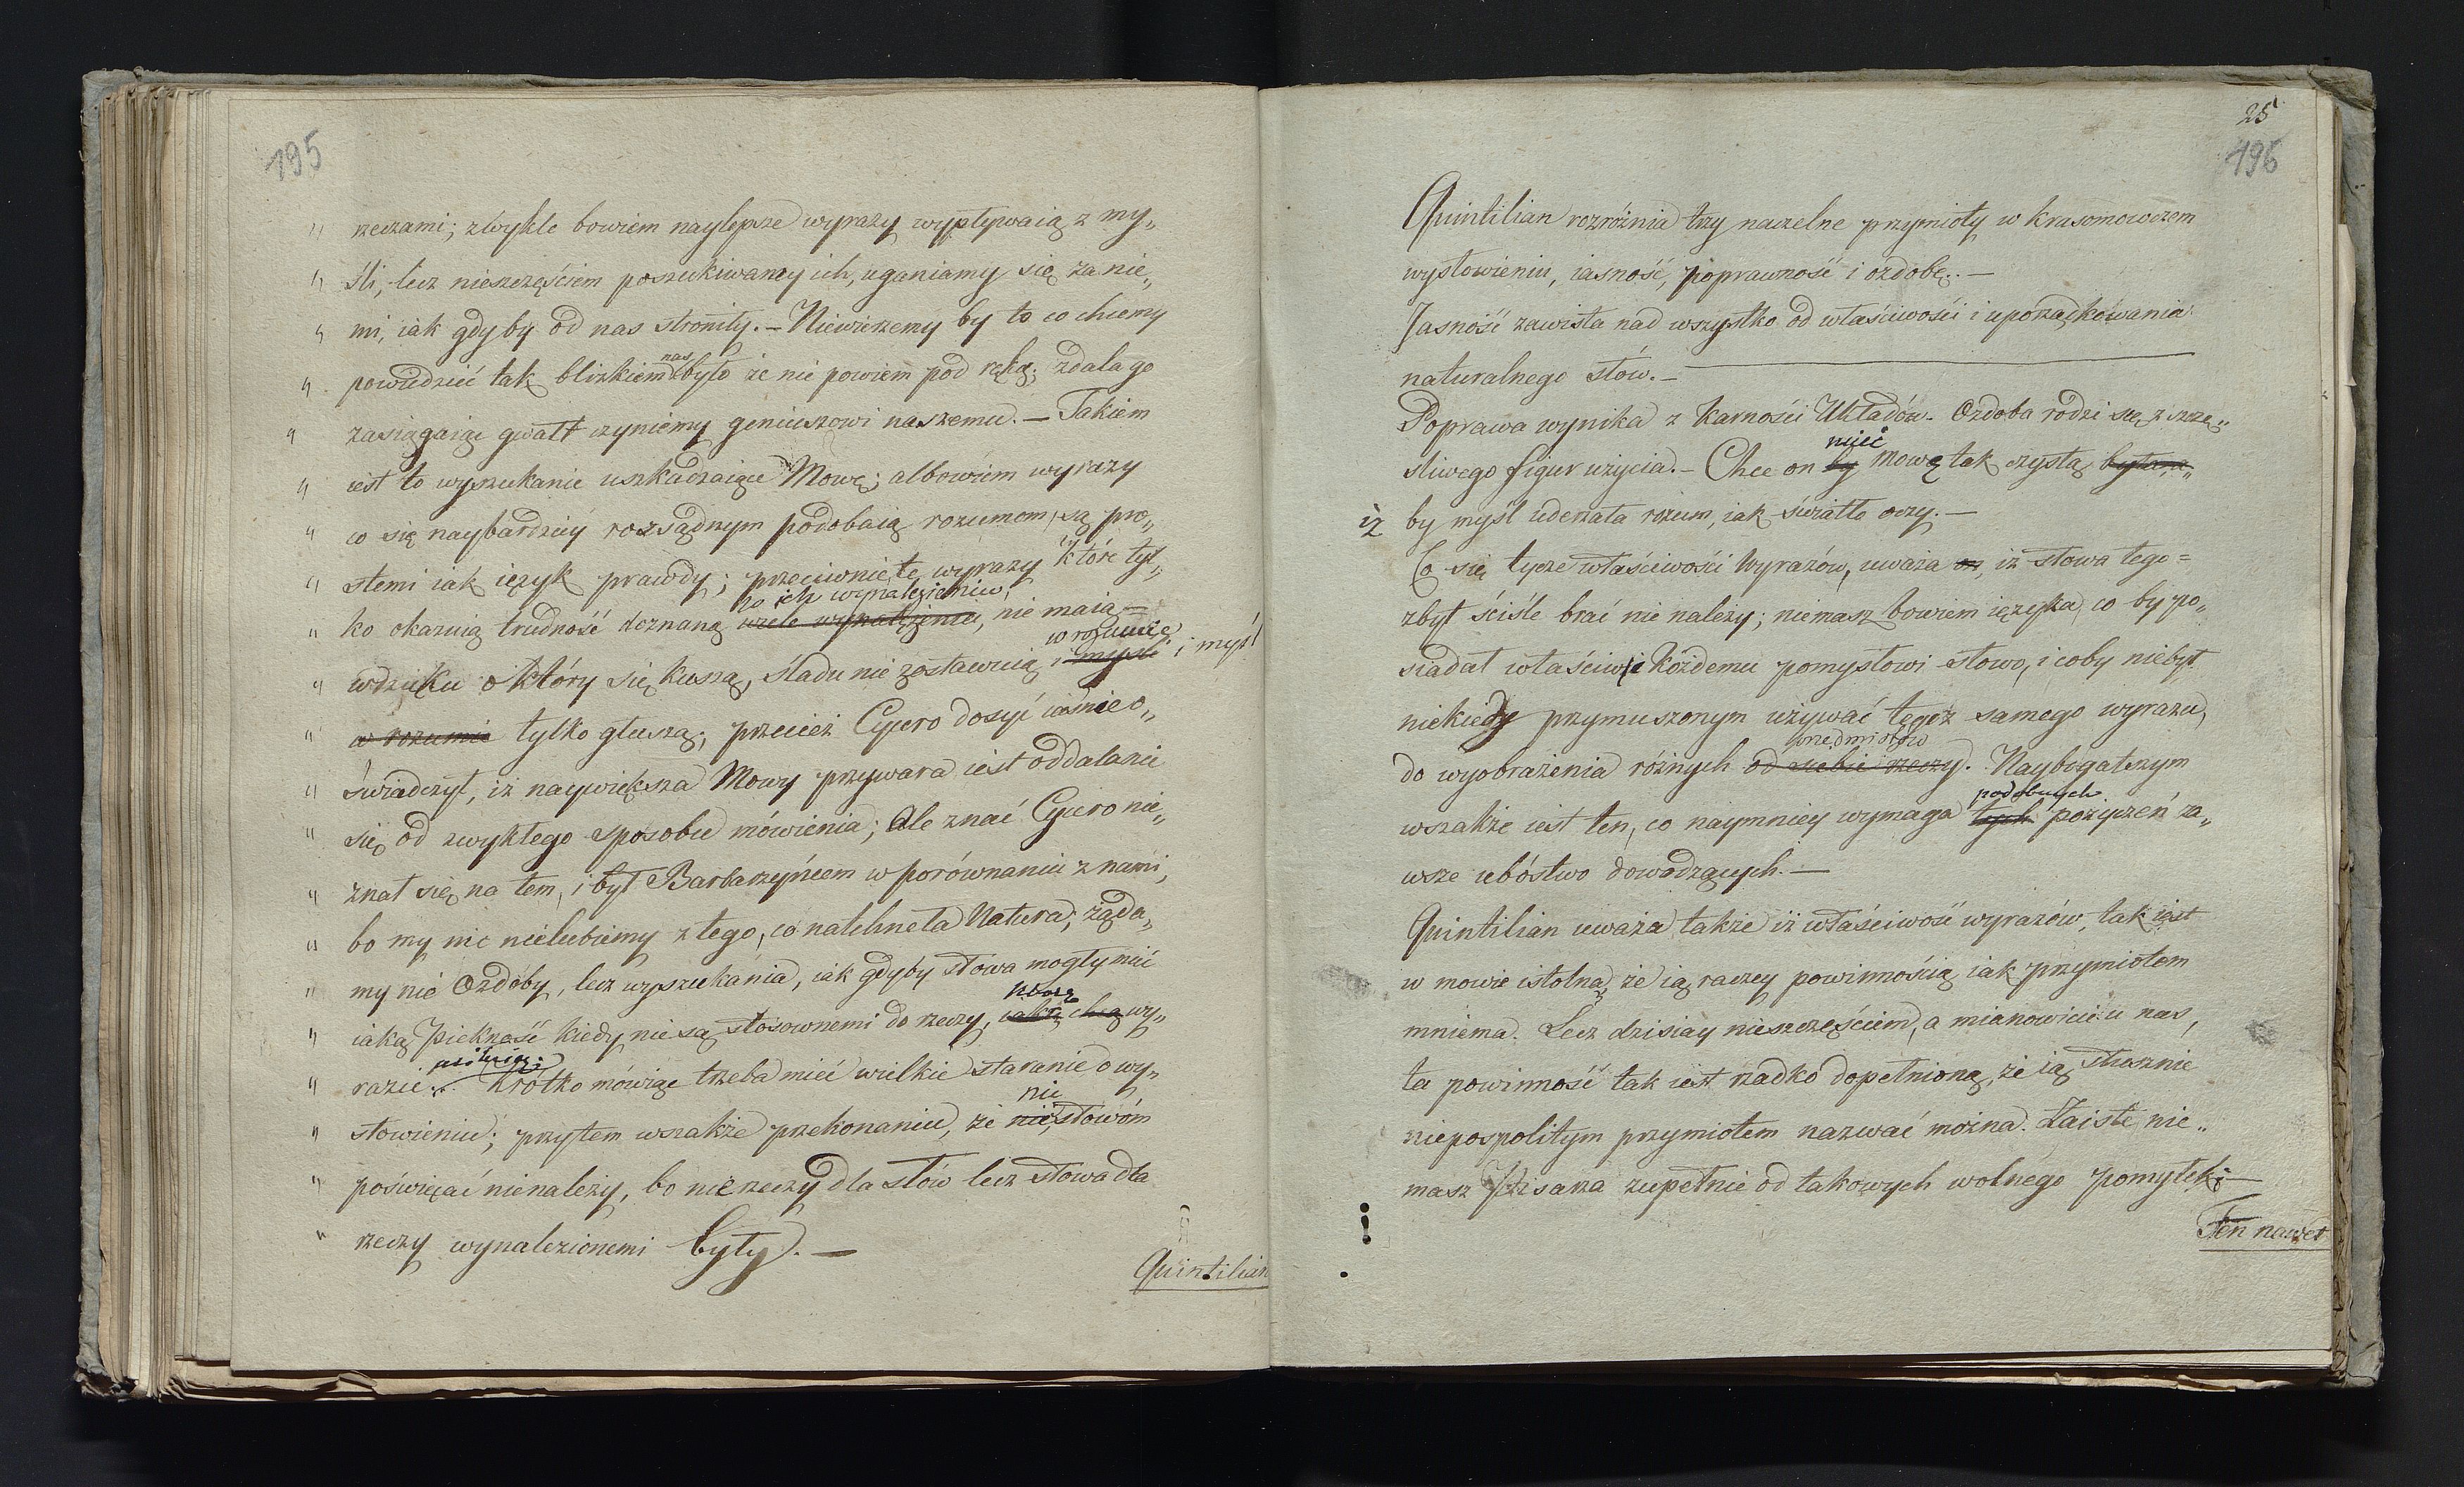 195
„ rzeczami; zwykle bowiem naylepsze wyrazy wypływaią z my„
„ śli, lecz nieszczęściem poszukiwamy ich, uganiamy się za nie„
„ mi, iak gdyby od nas stroniły.— Niewierzemy by to co chcemy
„ powiedzieć tak blizkiem nas było że nie powiem pod ręką; zdala go
„ zasiągaiąc gwałt czyniemy geniuszowi naszemu.— Takiem
„ iest to wyszukanie uszkadzaiące Mowę; albowiem wyrazy
„ co się naybardziéy rozsądnym podobaią rozumom, są pro„
„ stemi iak ięzyk prawdy; przeciwnie te wyrazy które tyl„
po ich wynalezieniu,
„ ko okazuią trudność doznaną wcele wynalezienia, nie maią —
w rozumie
„ wdzięku o który się kuszą, śladu nie zostawuią i myśli i myśl
„ w rozumie tylko głuszą; przecież Cycero dosyć iaśnie o„
„ świadczył, iż naywiększa Mowy przywara iest oddalanie
„ się od zwykłego sposobu mówienia; Ale znać Cycero nie„
„ znał się na tem, i był Barbarzyńcem w porównaniu z nami,
„ bo my nic nielubiemy z tego, co natchnęła Natura; żąda„
„ my nie Ozdoby, lecz wyszukania, iak gdyby słowa mogły mieć
„ iaką Piękność kiedy nie są stosownemi do rzeczy, chcą wy„
„ razić. Krótko mówiąc trzeba mieć wielkie staranie o wy„
nic
„ słowieniu; przytem wszakże przekonaniu, że nic słowom
„ poświęcać nienależy, bo nie rzeczy dla słów lecz słowa dla
„ rzeczy wynalezionemi były.—
Quintilian
25
196
Quintilian rozróżnia trzy naczelne przymioty w krasomowczem
wysłowieniu, iasność, poprawność i ozdobę.—
Jasność zawisła nad wszystko od właściwości i uporządkowania
naturalnego słów.—
Poprawa wynika z Karności Układów. Ozdoba rodzi się z szczę„
mieć
śliwego figur użycia.— Chce on by Mowę tak czystą była,„
iż by myśl uderzała rozum, iak światło oczy.—
Co się tycze właściwości Wyrazów, uważa on, iż słowa tego=
zbyt ściśle brać nie należy; niemasz bowiem ięzyka, co by po„
siadał właściwe każdemu pomysłowi słowo, i coby niebył
niekiedy przymuszonym używać tegoż samego wyrazu,
przedmiotów
do wyobrażenia różnych od siebie rzeczy. Naybogatszym
podobnych
wszakże iest ten, co naymniey wymaga tych pożyczeń za„
wsze ubóstwo dowodzących.—
Quintilian uważa także iż właściwość wyrazów, tak iest
w mowie istotną, że ią raczey powinnością iak przymiotem
mniema. Lecz dzisiay nieszczęściem, a mianowicie u nas,
ta powinność tak iest rzadko dopełnioną, że ią słusznie
niepospolitym przymiotem nazwać można. Zaiste nie„
masz Pisarza zupełnie od takowych wolnego pomyłek—
Ten nawet